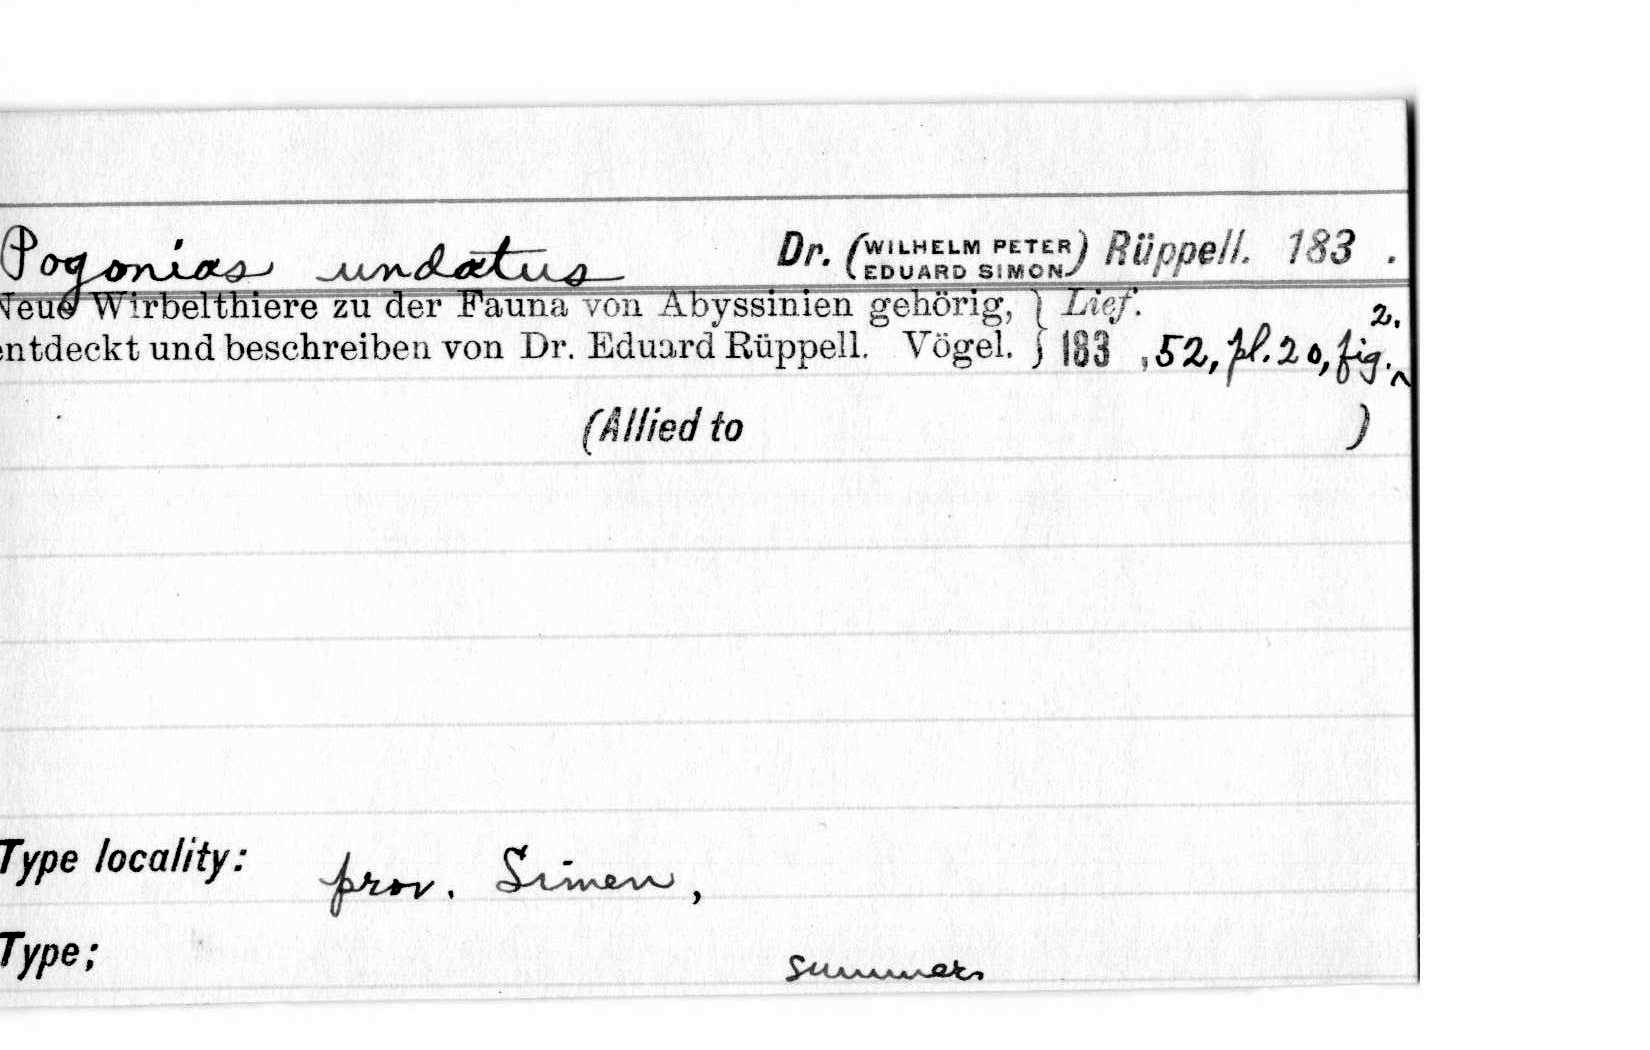 Pogonias undatus Dr. (WILHELM PETER EDUARD SIMON) Rüppell. 183 .
Neue Wirbelthiere zu der Fauna von Abyssinien gehörig, } Lief.
entdeckt und beschreiben von Dr. Eduard Rüppell. Vögel. } 183 , 52, pl. 20, fig. ^ 2.
(Allied to )
Type locality: prov. Simen,
Type; summer.